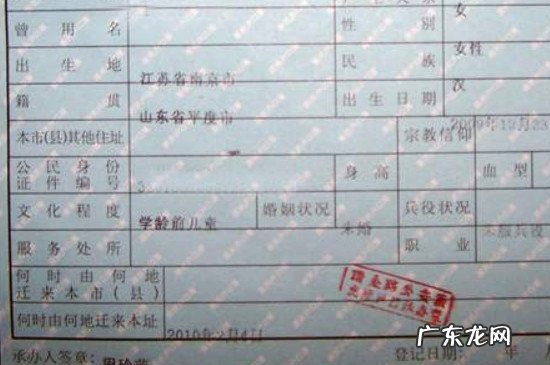 女
曾用名 性别
女性
出生地 江苏省南京市 民族
汉
籍贯 山东省平度市 出生日期
本市(县)其他住址 宗教信仰
公民身份证件编号 身高 血型
文化程度 学龄前儿童 婚姻状况 未婚 兵役状况 未服兵役
服务处所 职业
何时由何地迁来本市(县)
何时由何地迁来本址 2010年2月4日
承办人签章: 登记日期: 年 月
广东龙网